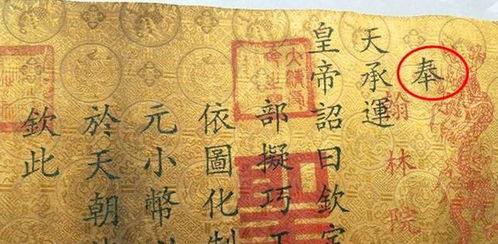 奉
天承運
皇帝詔曰欽定
部擬巧工
依圖化制
元小幣
於天朝
欽此
翰林院